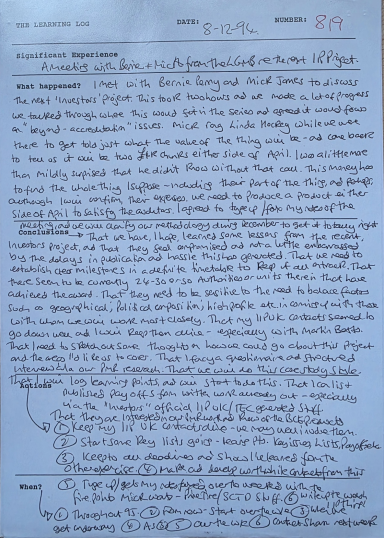 THE LEARNING LOG DATE: 8-12-94 NUMBER: 819
Significant Experience
A meeting with Bernie + Mick from the LGMB re the next IIP Project.
What happened? I met with Bernie Perry and Mick James to discuss
the next 'Investors' Project. This took two hours and we made a lot of progress
we talked through where this would sit in the series and agreed it would focus
on "beyond-accreditation" issues. Mick rang Linda Hockey while we were
there to get told just what the value of the thing will be - and came back
to tell us it will be two chunks either side of April. I was a little more
than mildly surprised that he didn't know without that call. This money has
to fund the whole thing I suppose - including their part of the thing, and
although I will confirm their expenses, we need to produce a product either
side of April to satisfy the auditors. I agreed to type up / fax my notes of the
meeting and we will clarify our methodology during December to get it to
Conclusions That we have, I hope, learned some lessons from the recent
Investors Project, and that they feel compromised and not a little embarrassed
by the delays in publication and hassle this has generated. That we need to
establish clear milestones in a definite timetable to keep it all on track. That
there seem to be currently 24-30 or so Authorities or units therein that have
achieved the award. That they need to be sensitive to the need to balance factors
such as geographical, political, high profile etc. in coming up with those
with whom we will work most closely. That my IIP UK contacts seemed to
go down well and I will keep them alive - especially with Martin
That I need to sketch out some thoughts on how we could go about this project
and the areas I'd like us to cover. That I favour a questionnaire and structured
interview like our PMR research. That we will do this case study style.
That I will log learning points and will start to do this. That I can list
Actions published pay offs from work already out - especially
via the "investors" official IIP UK / TEC generated stuff.
① Keep my IIP UK contacts alive - we may well involve them.
② Start some key lists going - learning Pts. Key Issues Lists, Pay offs etc
③ Keep to all deadlines and show I've learned from the
other exercise. ④ Make and develop worthwhile contacts from this
⑤ Type up / get my notes over to
When?
① Throughout 95. ② From now - start over the ③
get underway ④ As ③ ⑤ ⑥ Contact